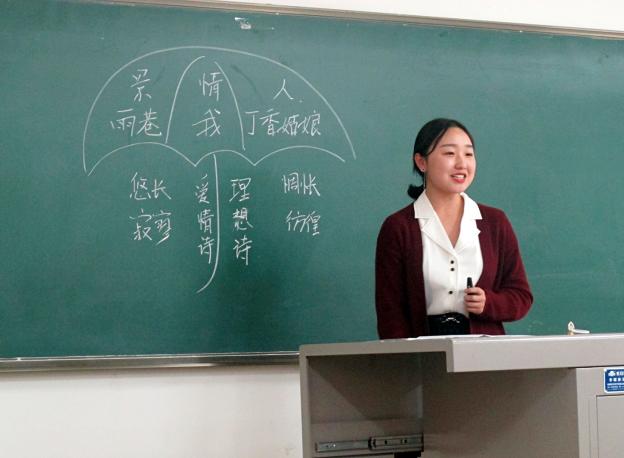 景 情 人
雨巷 我 丁香姑娘
悠长 爱情诗 理想诗 惆怅
寂寥 彷徨